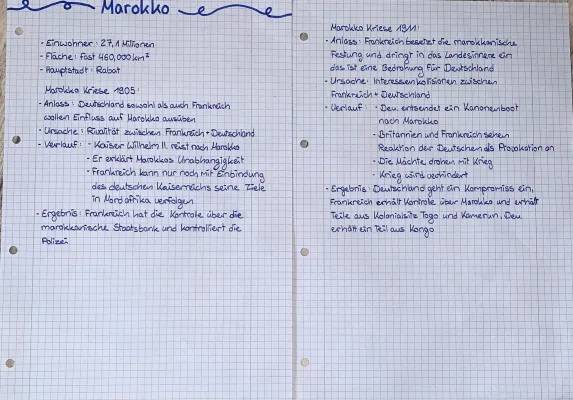 Marokko
- Einwohner: 27,1 Millionen
- Fläche: fast 460,000 km²
- Hauptstadt: Rabat
Marokko Kriese 1905:
- Anlass: Deutschland sowohl als auch Frankreich
wollen Einfluss auf Marokko ausüben
- Ursache: Rivalität zwischen Frankreich + Deutschland
- Verlauf: - Kaiser Wilhelm II. reist nach Marokko
- Er erklärt Marokkos Unabhängigkeit
- Frankreich kann nur noch mit Einbindung
des deutschen Kaiserreichs seine Ziele
in Nordafrika verfolgen
- Ergebnis: Frankreich hat die Kontrole über die
marokkanische Staatsbank und kontroliert die
Polizei
Marokko Kriese 1911:
- Anlass: Frankreich besetzt die marokkanische
Festung und dringt in das Landesinnere ein
das ist eine Bedrohung für Deutschland
- Ursache: Interessenkolisionen zwischen
Frankreich + Deutschland
- Verlauf: - Deu. entsendet ein Kanonenboot
nach Marokko
- Britannien und Frankreich sehen
Reaktion der Deutschen als Provokation an
- Die Mächte drohen mit Krieg
- Krieg wird verhindert
- Ergebnis: Deutschland geht ein Kompromiss ein,
Frankreich erhält Kontrole über Marokko und erhält
Teile aus Togo und Kamerun, Deu.
erhält ein Teil aus Kongo